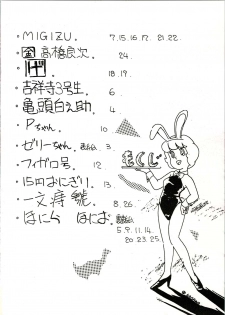 ・MIGIZU. 7.15.16.17.21.22.
・金 高橋良次 24.
18.19.
・吉祥寺3号生 6.
・亀頭白之助 4.
・Pちゃん 10.
・ゼリーちゃん 3.
・フィガロ号. 12.
・15円おにぎり. 13.
・一文痔號 8.26.
・はにら はにお
5.9.11.14.
20.23.25.
もくじ